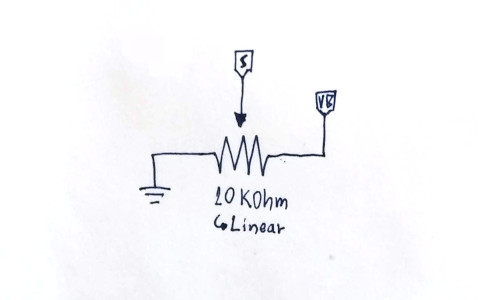 S
VB
10 KOhm
↳ Linear